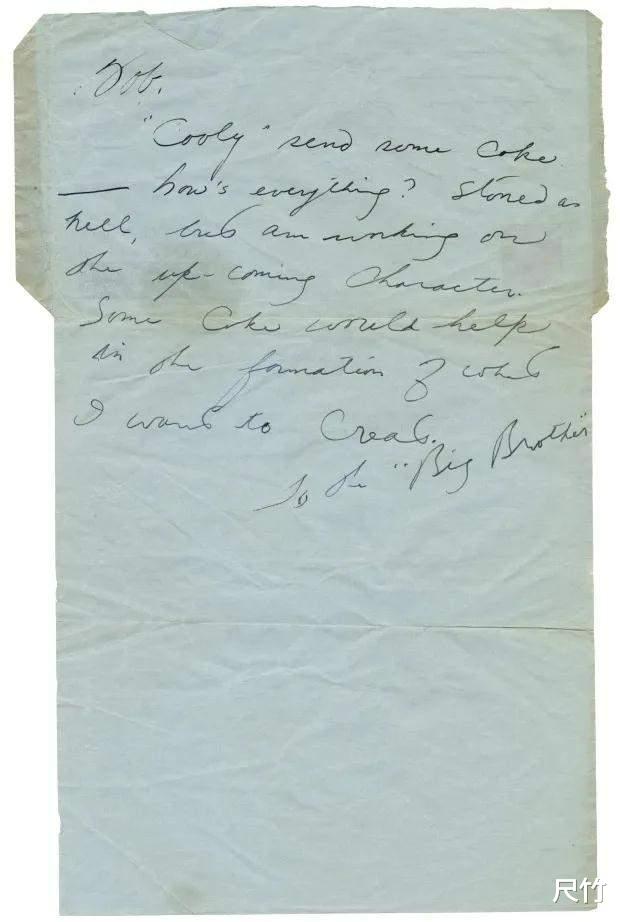 Bob.
"Cooly" send some coke
— how's everything? Stoned as
hell, but am working on
the up-coming character.
Some Coke would help
in the formation of what
I want to Creat.
To the "Big Brother"
尺竹